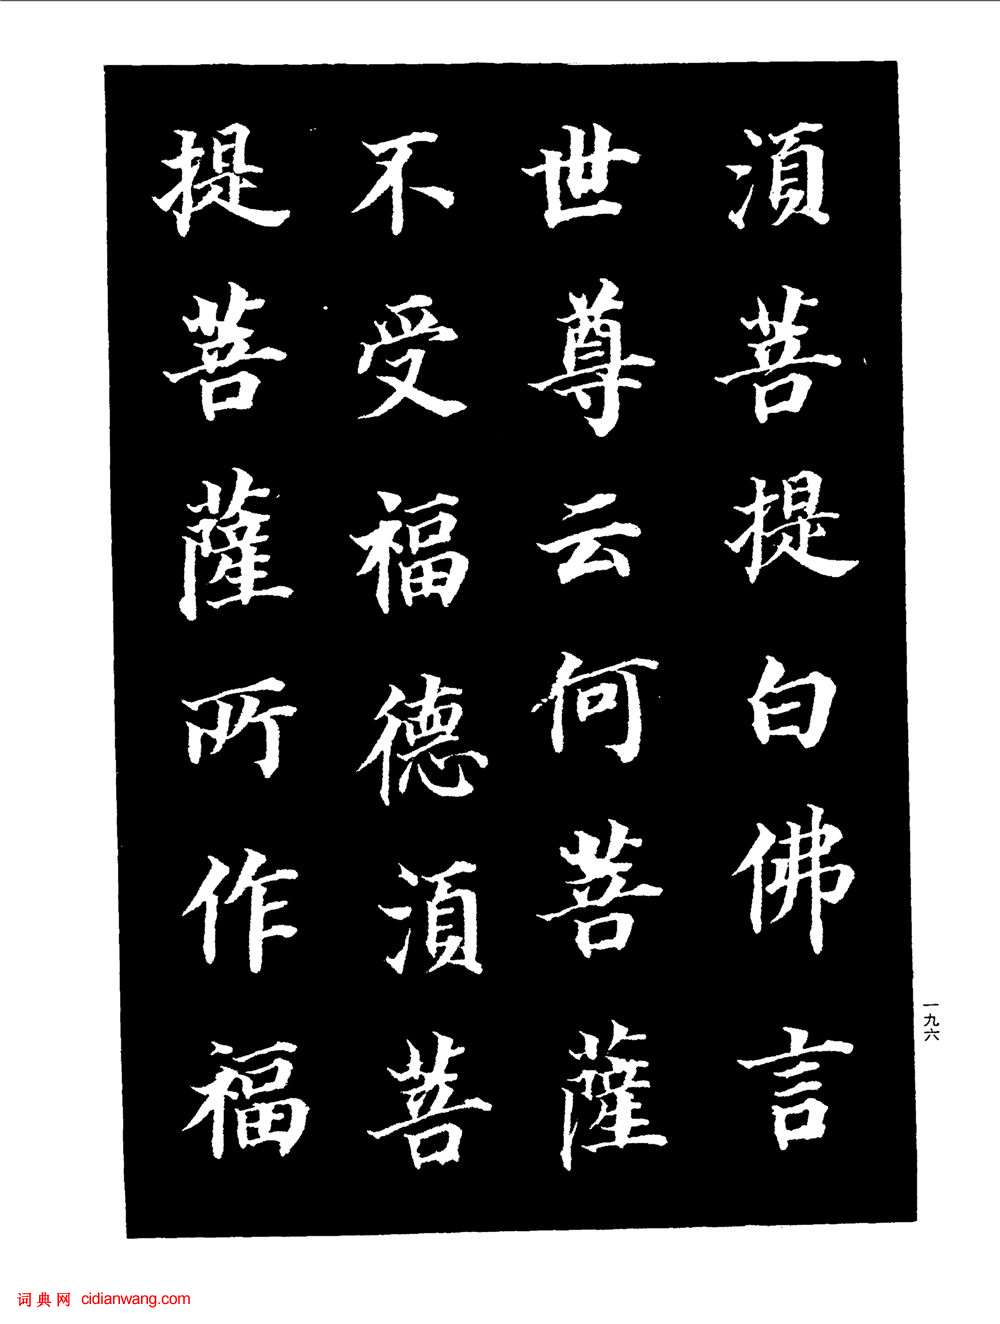 湏菩提白佛言
世尊云何菩薩
不受福德湏菩
提菩薩所作福
一九六
词典网 cidianwang.com